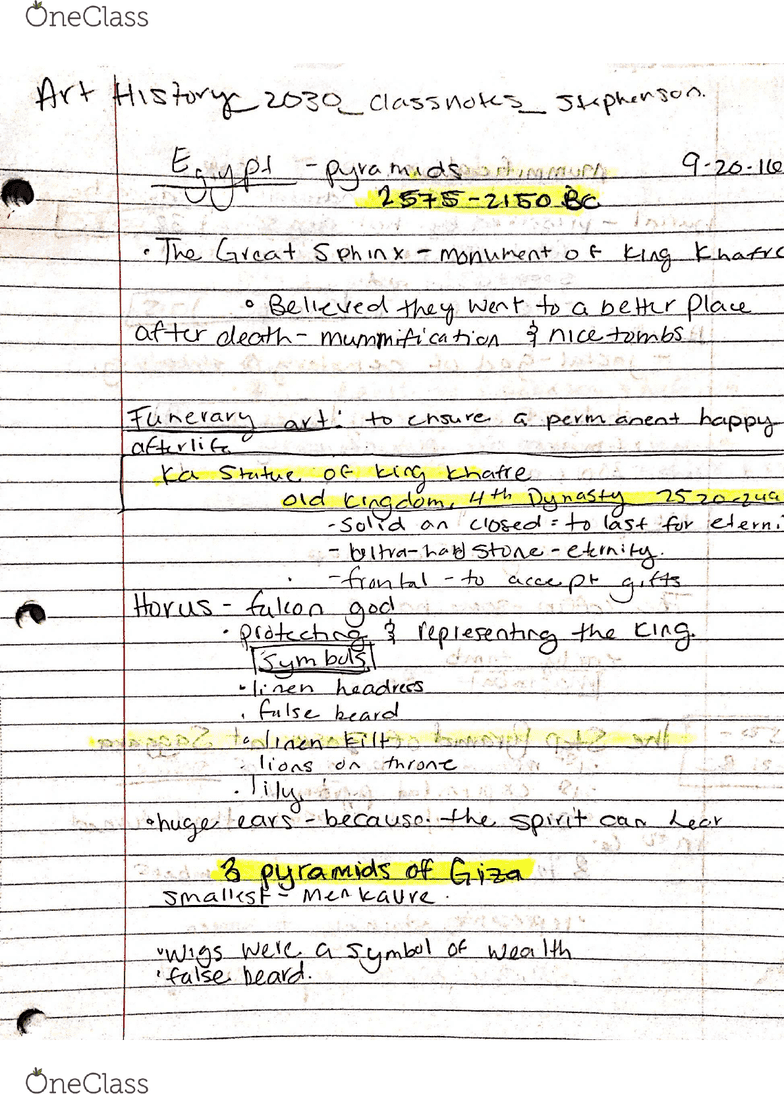 OneClass
Art History_2030_classnotes_Stephenson.
Egypt - pyramids 9-20-16
2575-2150 BC
· The Great Sphinx - monument of King Khafre
° Believed they went to a better place
after death - mummification & nice tombs
Funerary art: to ensure a permanent happy
afterlife
Ka Statue of King Khafre
old Kingdom, 4th Dynasty 2520-249
- Solid an closed = to last for eterni
- ultra-hard stone - eternity.
- frontal - to accept gifts
Horus - falcon god
· protecting & representing the King.
Symbols
· linen headress
· false beard
· linen kilt
· lions on throne
· lily
· huge ears - because the spirit can hear
3 pyramids of Giza
smallest - Menkaure.
· wigs were a symbol of wealth
· false beard.
OneClass